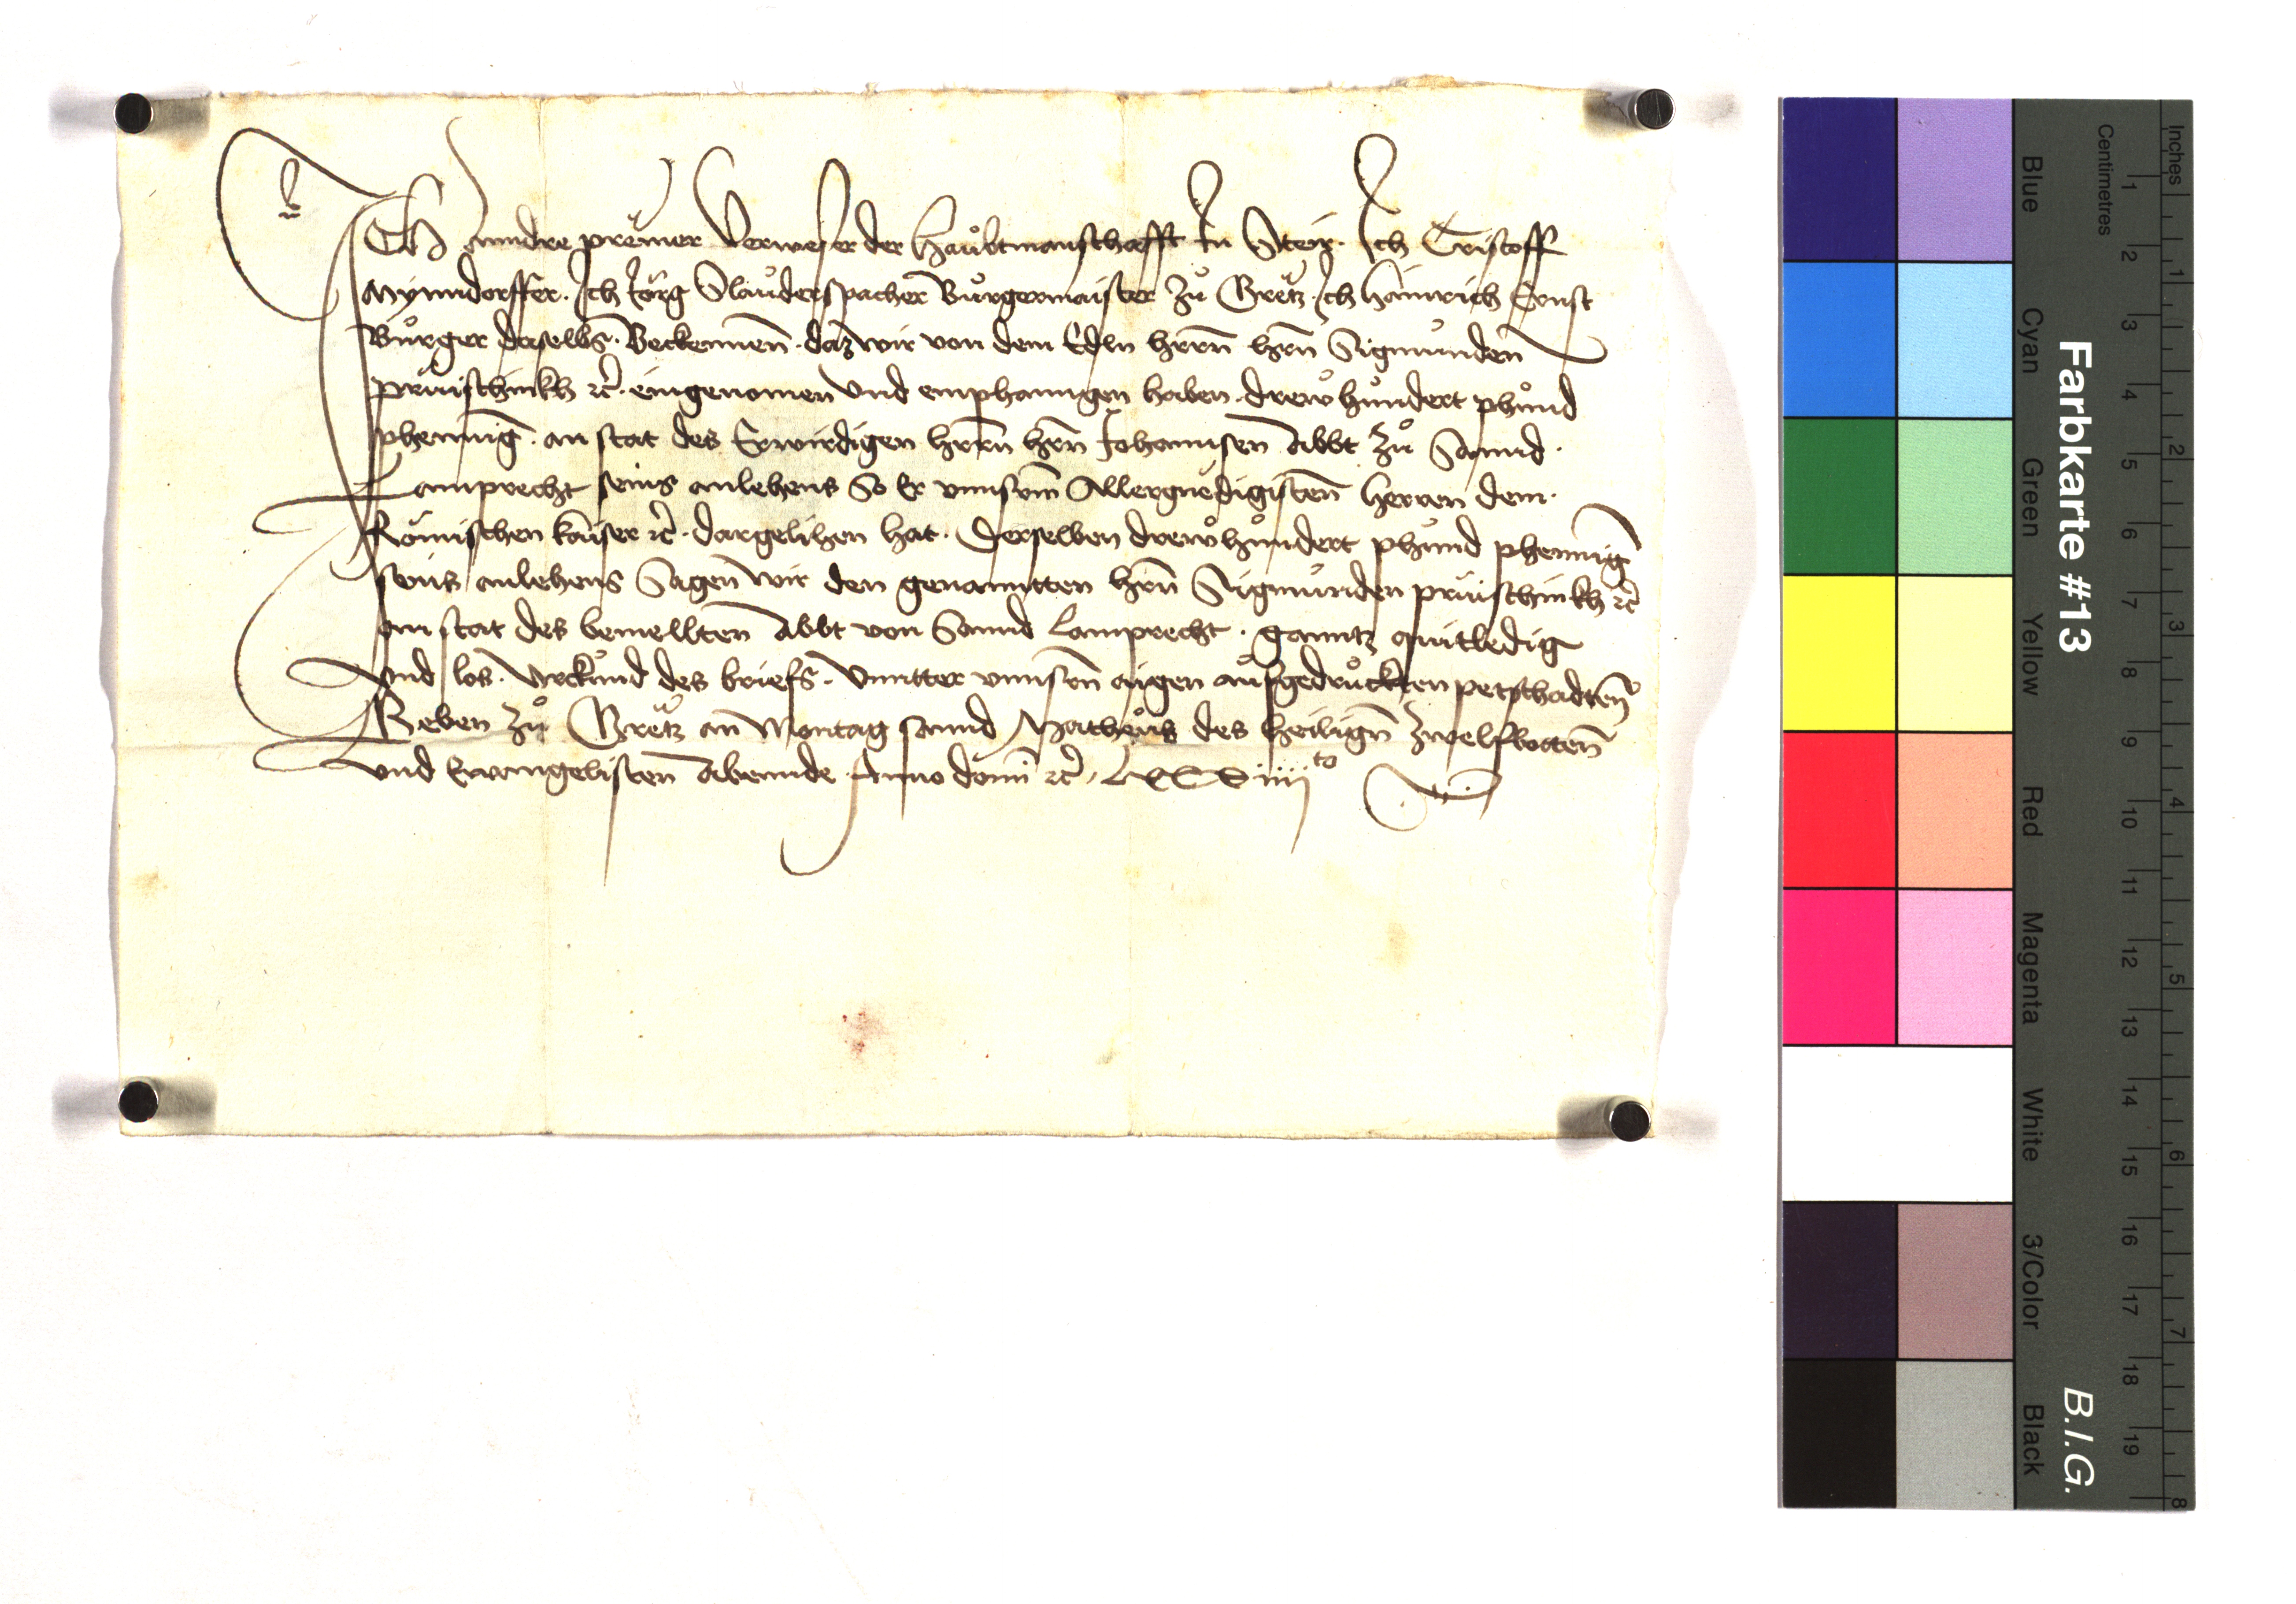 ICH Anndre prewner Verweser der Haubtmanschafft In Steir. Ich Cristoff
Mynndorffer. Ich Jorg Slauderspacher Burgermaister zů Gretz. Ich Hainrich Ernst
Burger daselbs. Beckennen. daz wir von dem Edln hrrn hrn Sigmunden
prüschinkh etc. eingenomen vnd emphanngen haben. drew hundert phund
phennig. an stat des Erwirdigen hrrn hrn Johannsen Abbt zů Sannd.
Lamprecht seins anlehens So Er vnnserm Allergnedigisten herren dem.
Römischen kaiser etc. dargelihen hat. Derselben drew hundert phund phennig
seins anlehens Sagen wir den genanntten hrn Sigmunden prüschinkh etc
an stat des bemellten Abbt von Sannd Lamprecht. ganntz quitledig
vnd los. Vrckund des briefs. Vnntter vnnsern aigen aufgedruckten petschadten
Geben zů Gretz an Montag sannd Matheus des heilign zwelfbotten
vnd Ewangelisten Abennde Anno domi etc. LXXXiiijto
Farbkarte #13
B.I.G.
Blue
Cyan
Green
Yellow
Red
Magenta
White
3/Color
Black
Inches
1 2 3 4 5 6 7 8
Centimetres
1 2 3 4 5 6 7 8 9 10 11 12 13 14 15 16 17 18 19